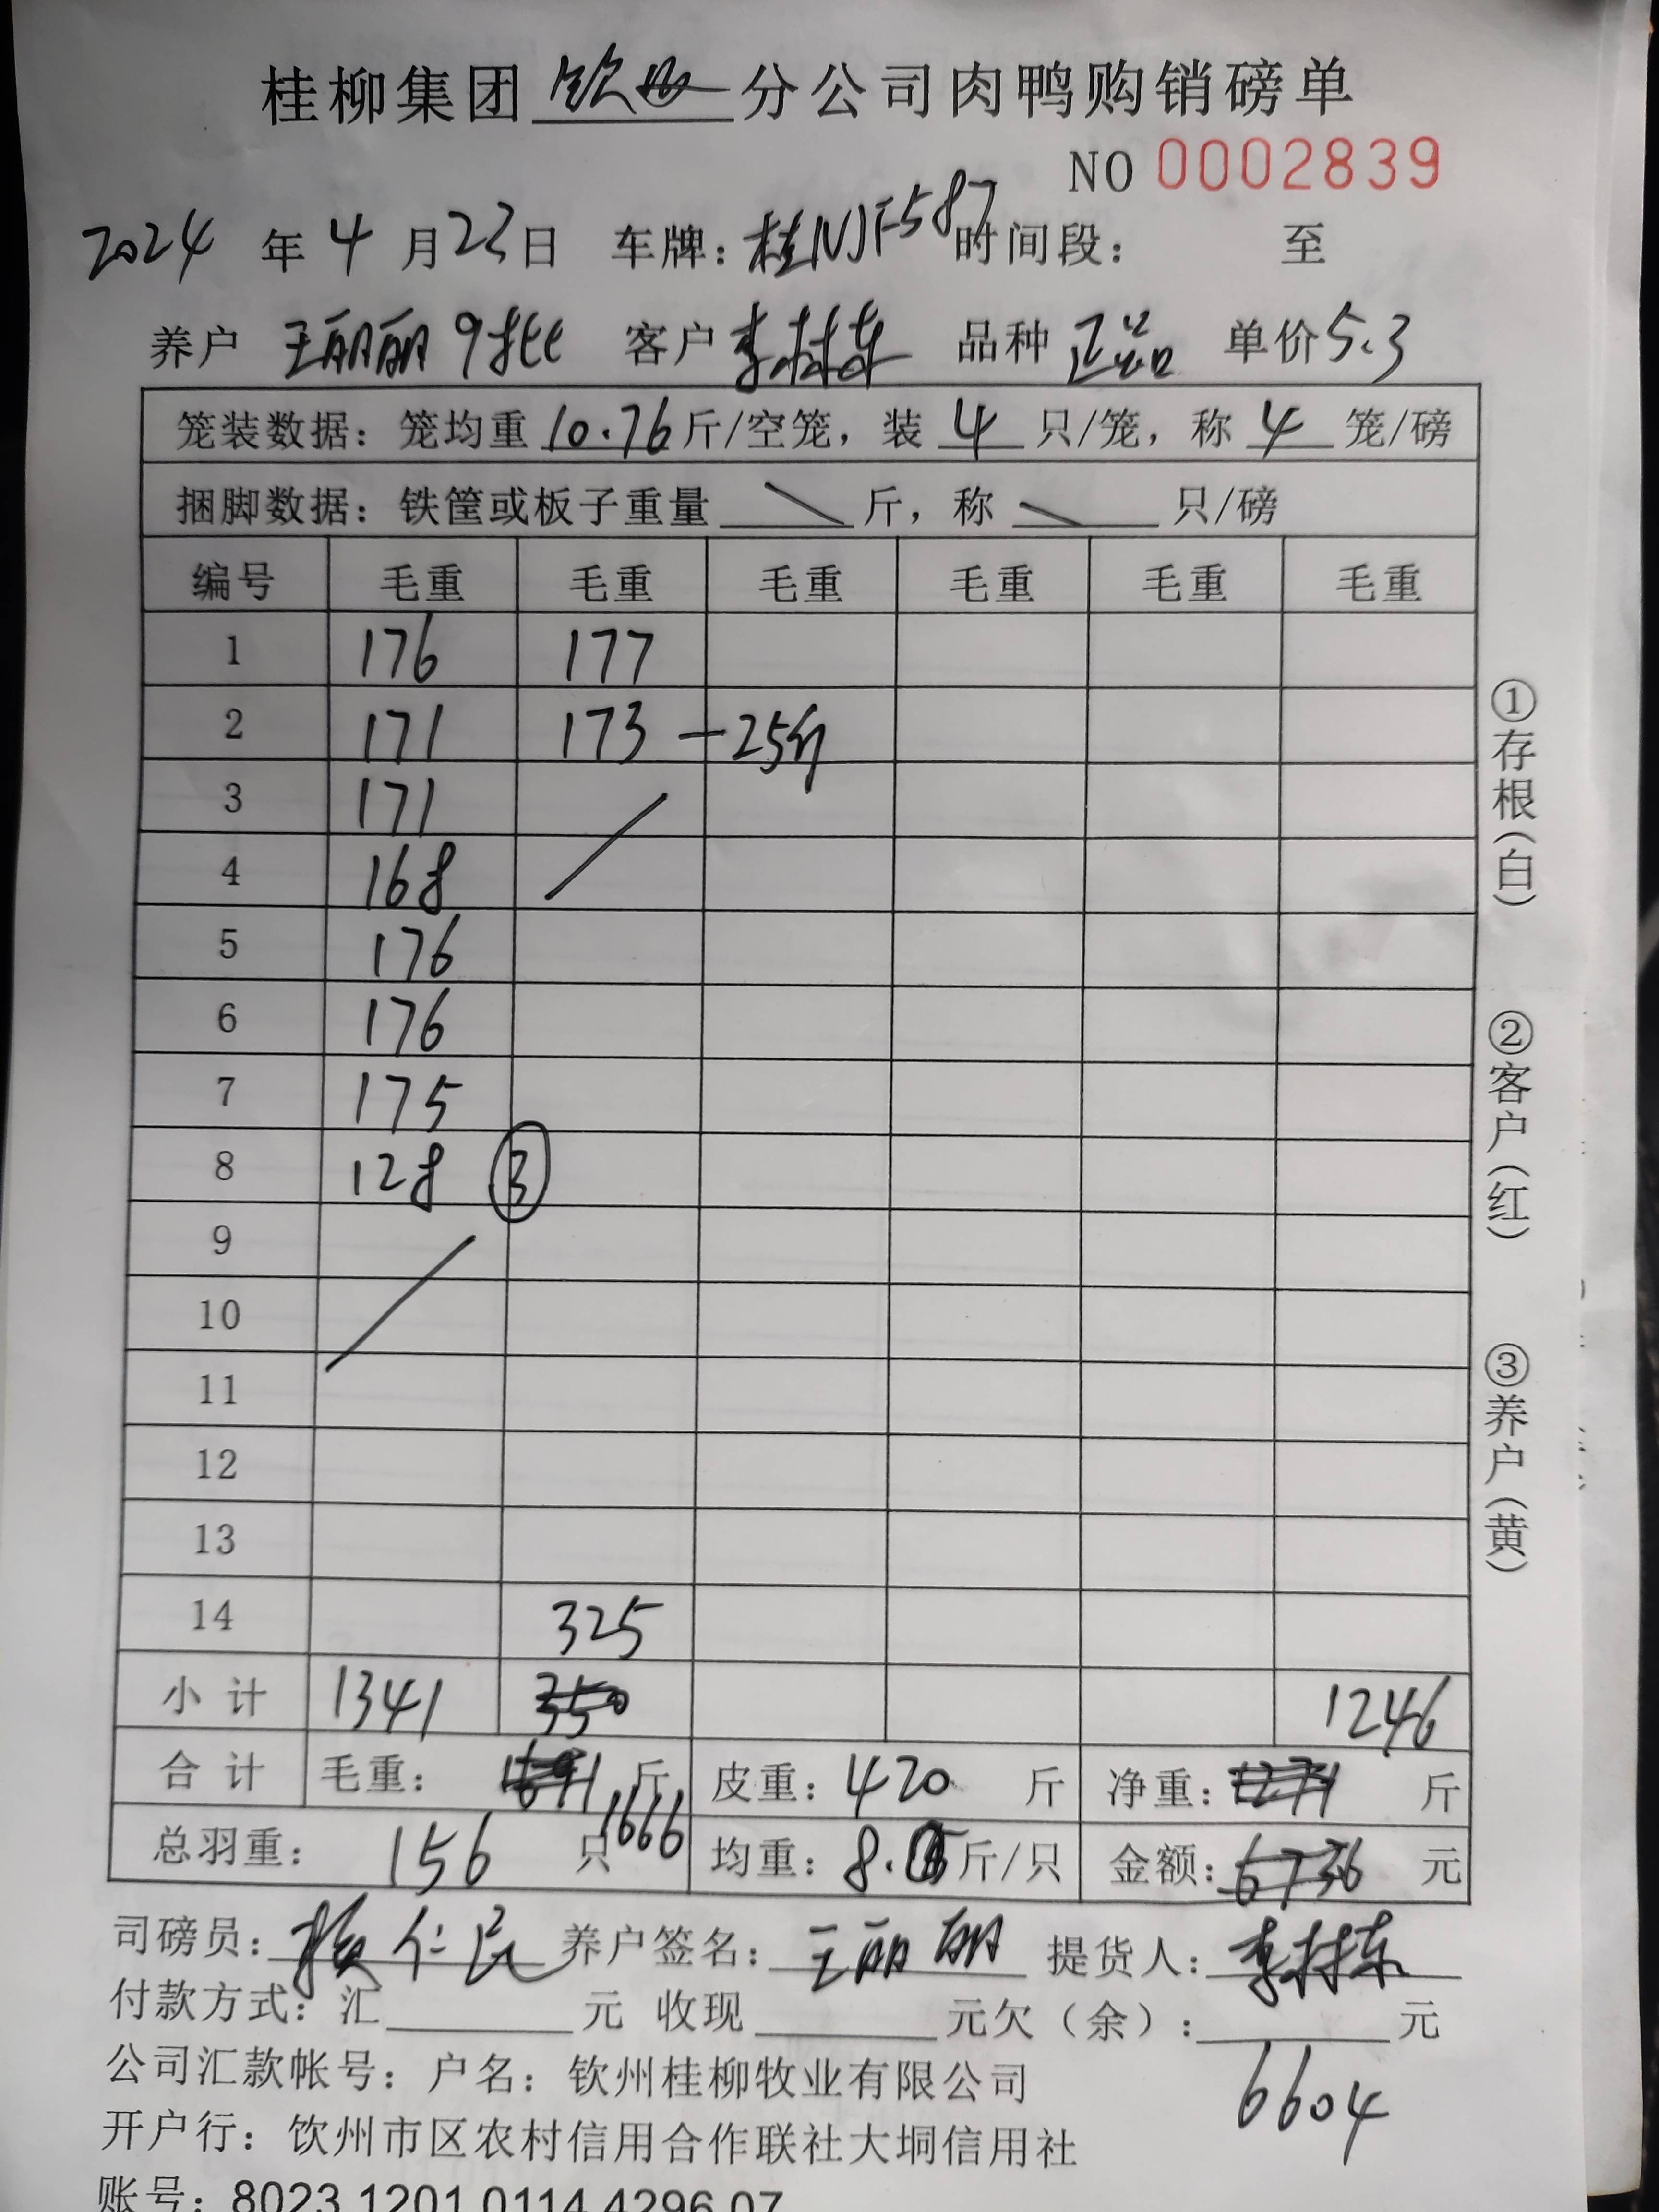 桂柳集团 钦州 分公司肉鸭购销磅单
NO 0002839
2024 年 4 月 23 日 车牌: 桂NJF587 时间段: 至
养户 王丽丽 9批 客户 李林东 品种 正品 单价 5.3
笼装数据: 笼均重 10.76 斤/空笼, 装 4 只/笼, 称 4 笼/磅
捆脚数据: 铁筐或板子重量 斤, 称 只/磅
编号 毛重 毛重 毛重 毛重 毛重 毛重
1 176 177
2 171 173 -25斤
3 171
4 168
5 176
6 176
7 175
8 128 ③
9
10
11
12
13
14 325
小计 1341 350 1246
合计 毛重: 1691 斤 皮重: 420 斤 净重: 1271 斤
1666
总羽重: 156 只 均重: 8. 斤/只 金额: 6736 元
司磅员: 仁民 养户签名: 王丽丽 提货人: 李林东
付款方式: 汇 元 收现 元欠(余): 元
6604
公司汇款帐号: 户名: 钦州桂柳牧业有限公司
开户行: 饮州市区农村信用合作联社大垌信用社
账号: 8023 1201 0114 4296 07
①存根(白)
②客户(红)
③养户(黄)